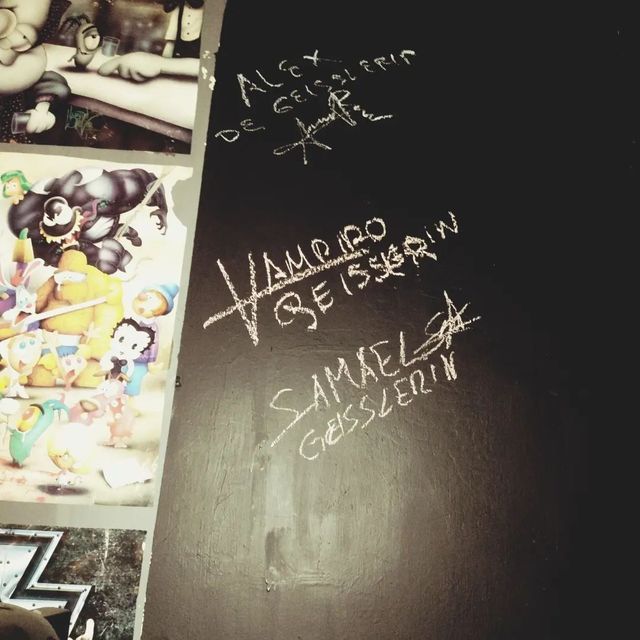 ALEX
DE GEISSLERIN
VAMPIRO
GEISSERIN
SAMAEL
GEISSLERIN